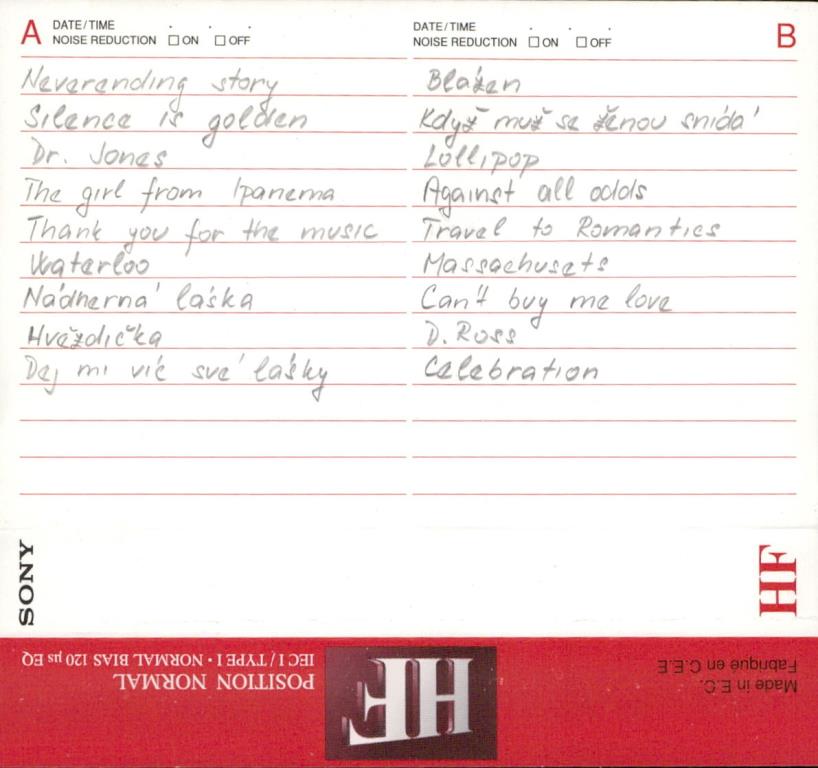 A DATE/TIME . . .
NOISE REDUCTION ☐ ON ☐ OFF
Neverending story
Silence is golden
Dr. Jones
The girl from Ipanema
Thank you for the music
Waterloo
Nádherná láska
Hvězdička
Dej mi víc své lásky
DATE/TIME . . . B
NOISE REDUCTION ☐ ON ☐ OFF
Blázen
Když muž se ženou snídá
Lollipop
Against all odds
Travel to Romantics
Massachusets
Can't buy me love
D. Ross
Celebration
SONY
HF
POSITION NORMAL
IEC I / TYPE I • NORMAL BIAS 120 µs EQ
HF
Made in E.C.
Fabriqué en C.E.E.